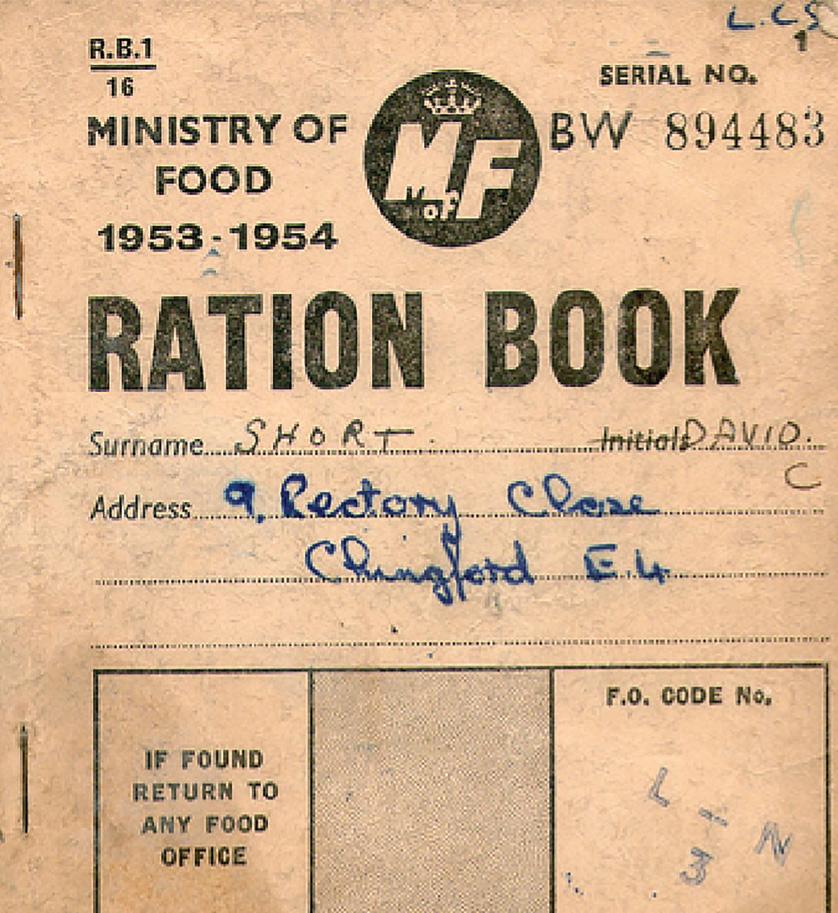 L.C.S
1
R.B.1
16
SERIAL NO.
MINISTRY OF
FOOD
1953-1954
M of F
BW 894483
RATION BOOK
Surname SHORT. Initials DAVID.
C
Address 9, Rectory Close
Chingford E.4
F.O. CODE No.
IF FOUND
RETURN TO
ANY FOOD
OFFICE
L - N
3